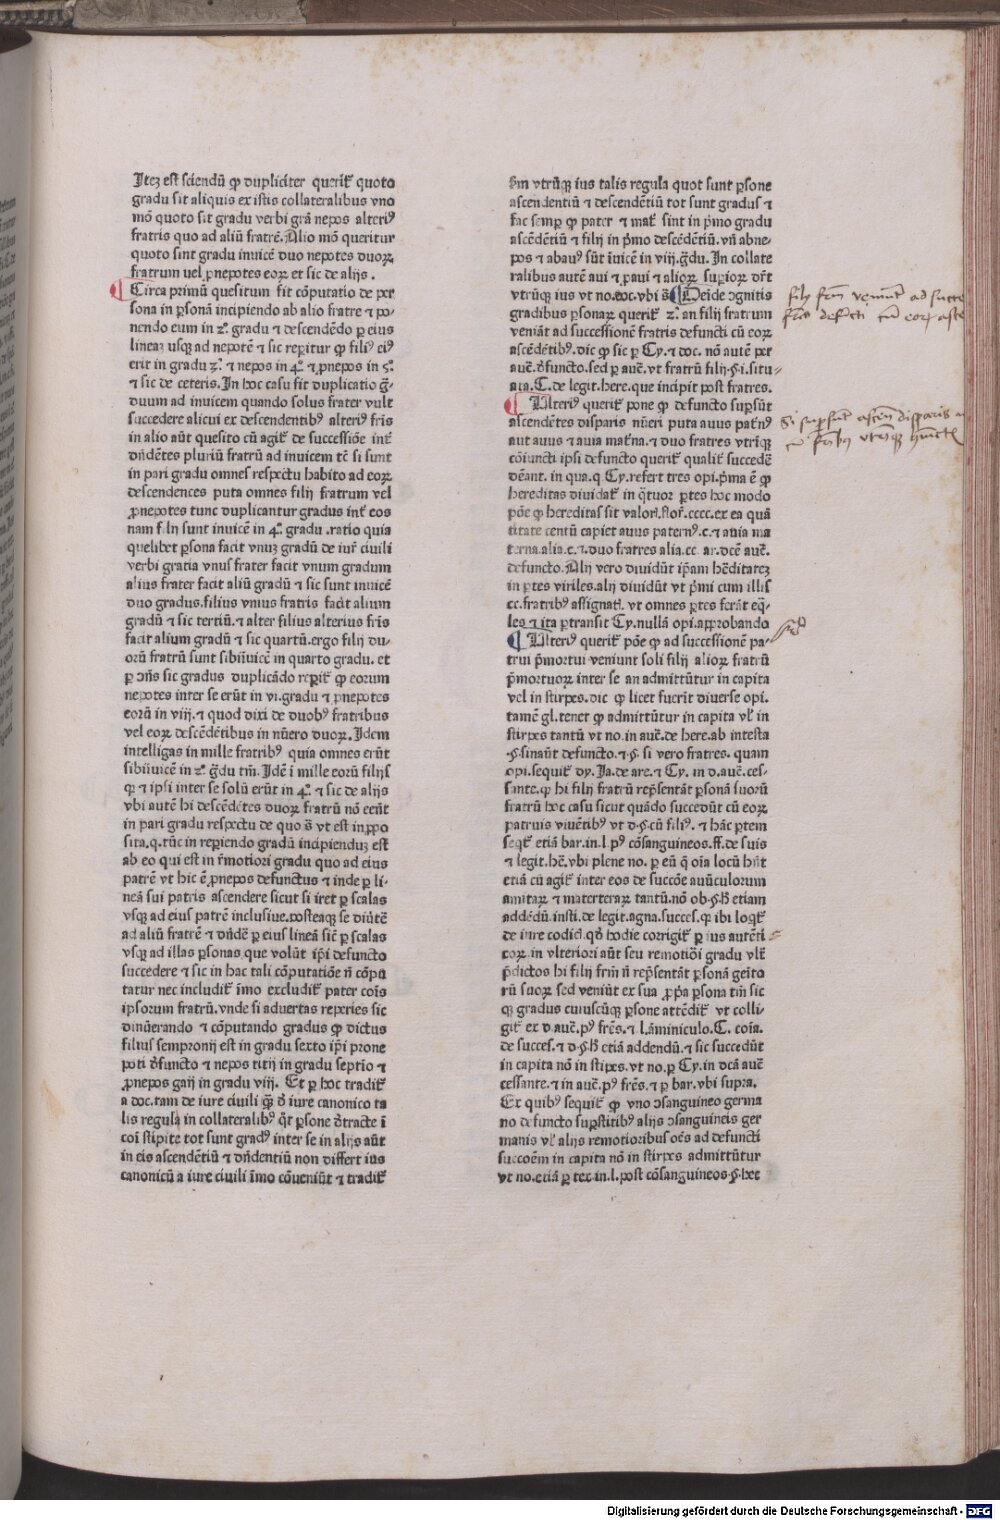 Itez est sciendū ꝙ dupliciter querit᷑ quoto
gradu sit aliquis ex istis collateralibus vno
mō quoto sit gradu verbi grā nepos alteriꝰ
fratris quo ad aliū fratrē. Alio mō queritur
quoto sint gradu inuicē duo nepotes duoꝝ
fratrum vel ꝓnepotes eoꝝ et sic de alijs .
Circa primū quesitum fit cōputatio de per
sona in ꝑsonā incipiendo ab alio fratre ⁊ po-
nendo eum in 2°. gradu ⁊ descendēdo ꝑ eius
lineaꝫ usqꝫ ad nepotē ⁊ sic reꝑitur ꝙ filiꝰ eiꝰ
erit in gradu 3°. ⁊ nepos in 4°. ⁊ ꝓnepos in 5°.
⁊ sic de ceteris. In hoc casu fit duplicatio g̃-
duum ad inuicem quando solus frater vult
succedere alicui ex descendentibꝰ alteriꝰ fr̄is
in alio aūt quesito cū agit᷑ de successiōe int᷑
dn̄dētes pluriū fratrū ad inuicem tē si sunt
in pari gradu omnes respectu habito ad eoꝝ
descendences puta omnes filij fratrum vel
ꝓnepotes tunc duplicantur gradus int᷑ eos
nam filij sunt inuicē in 4°. gradu .ratio quia
quelibet ꝑsona facit vnuꝫ gradū de iur̄ ciuili
verbi gratia vnus frater facit vnum gradum
alius frater facit aliū gradū ⁊ sic sunt inuicē
duo gradus.filius vnius fratris facit alium
gradū ⁊ sic tertiū.⁊ alter filius alterius fr̄is
facit alium gradū ⁊ sic quartū.ergo filij du-
orū fratrū sunt sibiinuicē in quarto gradu. et
ꝑ ↄn̄s sic gradus duplicādo reꝑit᷑ ꝙ eorum
nepotes inter se erūt in vi.gradu ⁊ ꝓnepotes
eorū in viij.⁊ quod dixi de duobꝰ fratribus
vel eoꝝ descēdētibus in nūero duoꝝ. Idem
intelligas in mille fratribꝰ quia omnes erūt
sibiinuicē in 2°. g̃du tm̄. Idē ī mille eorū filijs
qꝛ ⁊ ipsi inter se solū erūt in 4°. ⁊ sic de alijs
vbi autē hi descēdētes duoꝝ fratrū nō eēnt
in pari gradu respectu de quo s̄ vt est in ꝓpo
sita.q.tūc in reꝑiendo gradū incipienduꝫ est
ab eo qui est in r̄motiori gradu quo ad eius
patrē vt hic ē ꝓnepos defunctus ⁊ inde ꝑ li-
neā sui patris ascendere sicut si iret ꝑ scalas
vsqꝫ ad eius patrē inclusiue.posteaqꝫ se diūtē
ad aliū fratrē ⁊ dn̄dē ꝑ eius lineā sic̄ ꝑ scalas
vsqꝫ ad illas ꝑsonas que volūt ip̄i defuncto
succedere ⁊ sic in hac tali cōputatiōe n̄ cōpu
tatur nec includit᷑ īmo excludit᷑ pater coīs
ipsorum fratrū.vnde si aduertas reperies sic
dinūerando ⁊ cōputando gradus ꝙ dictus
filius sempronij est in gradu sexto ip̄i prone
poti d̄functo ⁊ nepos titij in gradu septīo ⁊
ꝓnepos gaij in gradu viij. Et ꝑ hoc tradit᷑
a doc.tam de iure ciuili q̄ꝫ d̄ iure canonico ta
lis regula in collateralibꝰ q̄t ꝑsone d̄tracte ī
coī stipite tot sunt gradꝰ inter se in alijs aūt
in eis ascendētiū ⁊ dn̄dentiū non differt ius
canonicū a iure ciuili īmo cōueniūt ⁊ tradit᷑
s̄m vtrūqꝫ ius talis regula quot sunt ꝑsone
ascendentiū ⁊ descendētiū tot sunt gradus ⁊
fac semꝑ ꝙ pater ⁊ mat᷑ sint in p̄mo gradu
ascēdētiū ⁊ filij in p̄mo descēdētiū. vn̄ abne-
pos ⁊ abauꝰ sūt īuicē in viij.g̃du. In collate
ralibus autē aui ⁊ ꝓaui ⁊ alioꝝ suꝑioꝝ dr̄t
vtrūqꝫ ius vt no.doc.vbi s̄ Deīde ↄgnitis
gradibus ꝑsonaꝝ querit᷑ 2°. an filij fratrum
veniāt ad successionē fratris defuncti cū eoꝝ
ascēdētibꝰ.dic ꝙ sic ꝑ Cy. ⁊ doc. nō autē per
auē. d̄functo.sed ꝑ auē. vt fratrū filij.§.i.situ-
ata.C.de legit.here.que incipit post fratres.
Ulteriꝰ querit᷑ pone ꝙ defuncto suꝑsūt
ascendētes disparis nūeri puta auus pat᷑nꝰ
aut auus ⁊ auia mat᷑na.⁊ duo fratres vtrīqꝫ
cōiuncti ipsi defuncto querit᷑ qualit᷑ succedē
dēant. in qua.q Cy.refert tres opi.p̄ma ē ꝙ
hereditas diuidat᷑ in q̄tuor ꝑtes hoc modo
pōe ꝙ hereditas sit valoris flor̄.cccc.ex ea quā
titate centū capiet auus paternꝰ.c.⁊ auia ma
terna.alia.c.⁊.duo fratres alia.cc ar.dcē auē.
defuncto. Alij vero diuidūt ip̄am hēditateꝫ
in ꝑtes viriles.alij diuidūt vt p̄mi cum illis
cc.fratribꝰ assignatꝭ. vt omnes ꝑtes ferāt eq̄-
les ⁊ ita ꝑtransit Cy.nullā opi.approbando
Ulteriꝰ querit᷑ pōe ꝙ ad successionē pa-
trui p̄mortui veniunt soli filij alioꝝ fratrū
p̄mortuoꝝ inter se an admittūtur in capita
vel in stirpes.dic ꝙ licet fuerit diuerse opi.
tamē gl.tenet ꝙ admittūtur in capita vl̄ in
stirpes tantū vt no.in auē.de here.ab intesta
.§.sinaūt defuncto.⁊.§. si vero fratres. quam
opi.sequit᷑ dy. Ja.de are.⁊ Cy. in d.auē.ces-
sante.qꝛ hi filij fratrū rep̄sentāt ꝑsonā suorū
fratrū hoc casu sicut quādo succedūt cū eoꝝ
patruis viuētibꝰ vt d.§.cū filiꝰ. ⁊ hāc ꝑtem
seqt᷑ etiā bar.in.l.pꝰ cōsanguineos.ff.de suis
⁊ legit.hē.vbi plene no. ꝑ eū q̄ oīa locū hn̄t
etiā cū agit᷑ inter eos de succōe auūculorum
amitaꝝ ⁊ materteraꝝ tantū.nō ob.§.hꝫ etiam
addēdū.insti.de legit.agna.succes.qꝛ ibi loqt᷑
de iure codici.qd̄ hodie corrigit᷑ ꝑ ius autēti
coꝝ.in vlteriori aūt seu remotiōi gradu vlt᷑
p̄dictos hi filij fr̄m n̄ rep̄sentāt ꝑsonā geīto
rū suoꝝ sed veniūt ex sua ꝓpa ꝑsona tm̄ sic
qꝫ gradus cuiuscūqꝫ ꝑsone attēdit᷑ vt colli-
git᷑ ex d.auē.pꝰ fr̄es.⁊ l.āminiculo.C. coīa.
de succes.⁊ d.§.hꝫ etiā addendū.⁊ sic succedūt
in capita nō in stipes.vt no.ꝑ Cy.in dcā auē
cessante.⁊ in auē.pꝰ fr̄es.⁊ ꝑ bar.vbi supra.
Ex quibꝰ sequit᷑ ꝙ vno ↄsanguineo germa
no defuncto suꝑstitibꝰ alijs ↄsanguineis ger
manis vl̄ alijs remotioribus oēs ad defuncti
succoēm in capita nō in stirpes admittūtur
vt no.etiā ꝑ tex.in.l.post cōsanguineos.§.hec
Digitalisierung gefördert durch die Deutsche Forschungsgemeinschaft - DFG